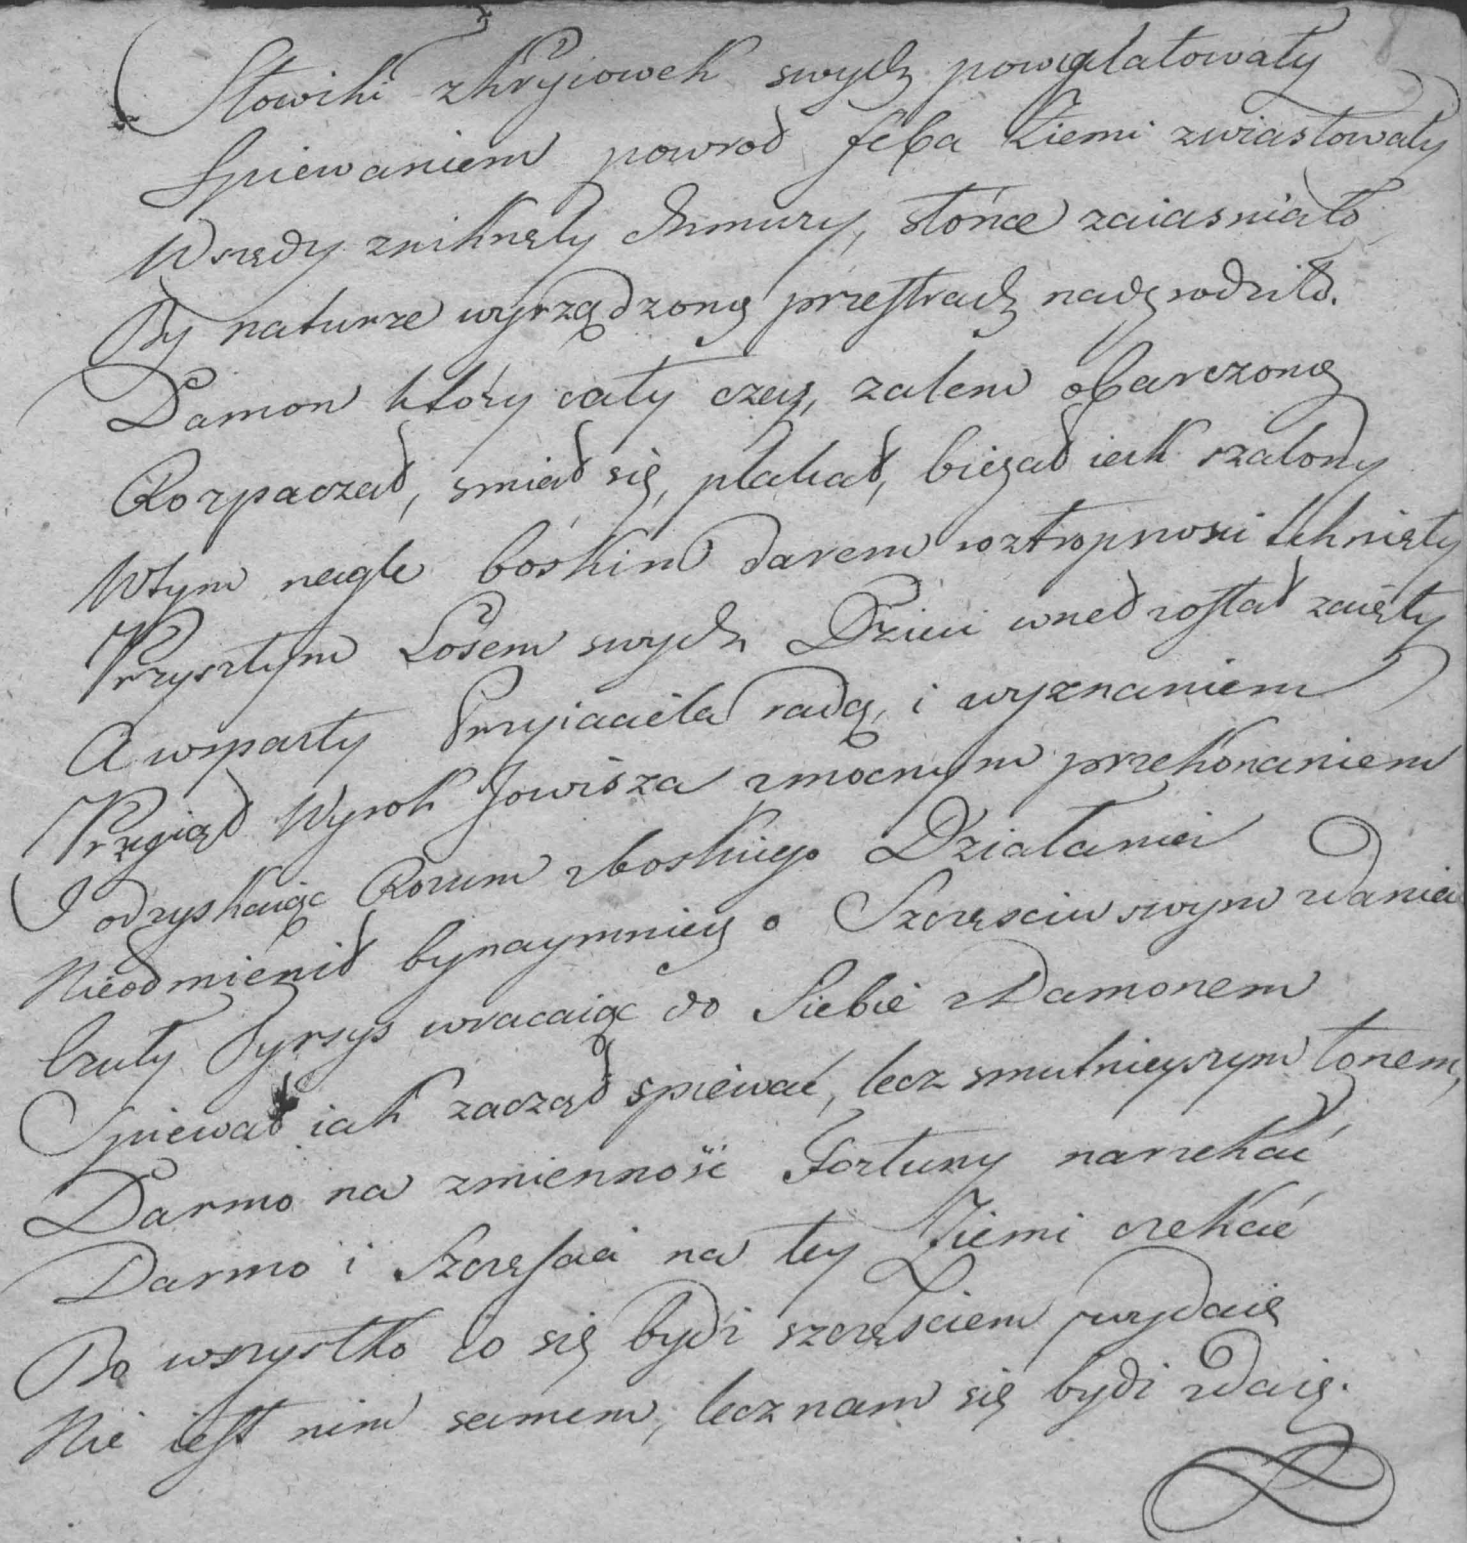 Słowiki zkryiowek swych powylatowały
Spiewaniem powrod feba Ziemi zwiastowały
Wszędy zniknęły chmury, słońce zaiasniało
By naturze wyrządzoną przestrach nadgrodziło.
Damon który cały czas, zalem obarczony
Rozpaczał, smiał się, płakał, biegał iak szalony
Wtym nagle boskim darem roztropnosci tchnięty
Przyszłym Losem swych Dzieci wned został zaięty
A wsparty Przyiaciela radą, i wyznaniem
Przyiął Wyrok Jowisza zmocnym przekonaniem
I odzyskaiąc Rozum zboskiego Działania
Nieodmienił bynaymniey o Szczęsciu swym zdania
Czuły Tyrsys wracaiąc do Siebie zDamonem
Spiewał iak zaczął spiewać, lecz smutnieyszym tonem,
Darmo na zmienność Fortuny narzekać
Darmo i Szczęscia na tey Ziemi czekać
Bo wszystko co się bydź szczęściem wydaię
Nie iest nim samem, lecz nam się bydź zdaię.